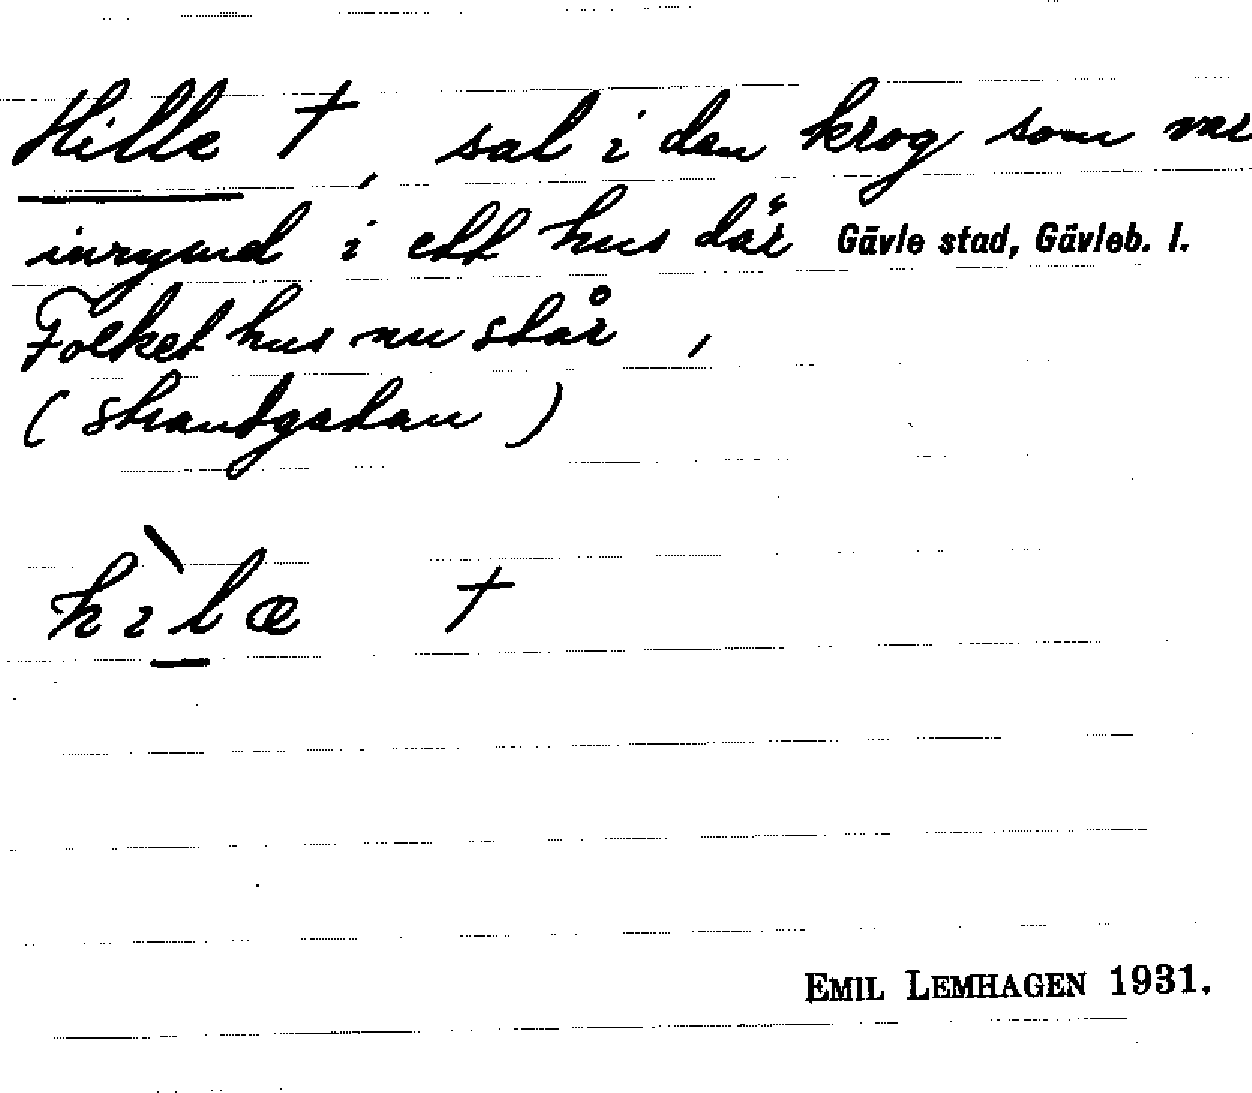 Hille †, sal i den krog som var
inrymd i ett hus där Gävle stad, Gävleb. l.
Folket hus nu står,
(strandgatan)
hìlæ †
EMIL LEMHAGEN 1931.